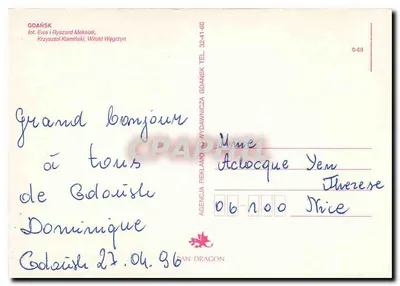 GDAŃSK
fot. Ewa i Ryszard Meksiak,
Krzysztof Kamiński, Witold Węgrzyn
Grand bonjour
à tous
de Gdańsk
Dominique
Gdańsk 27.04.96
AGENCJA REKLAMOWO-WYDAWNICZA GDAŃSK TEL. 32-41-60
Mme
Aclocque Yen
Therese
06100 Nice
PAN DRAGON
CPARAMA